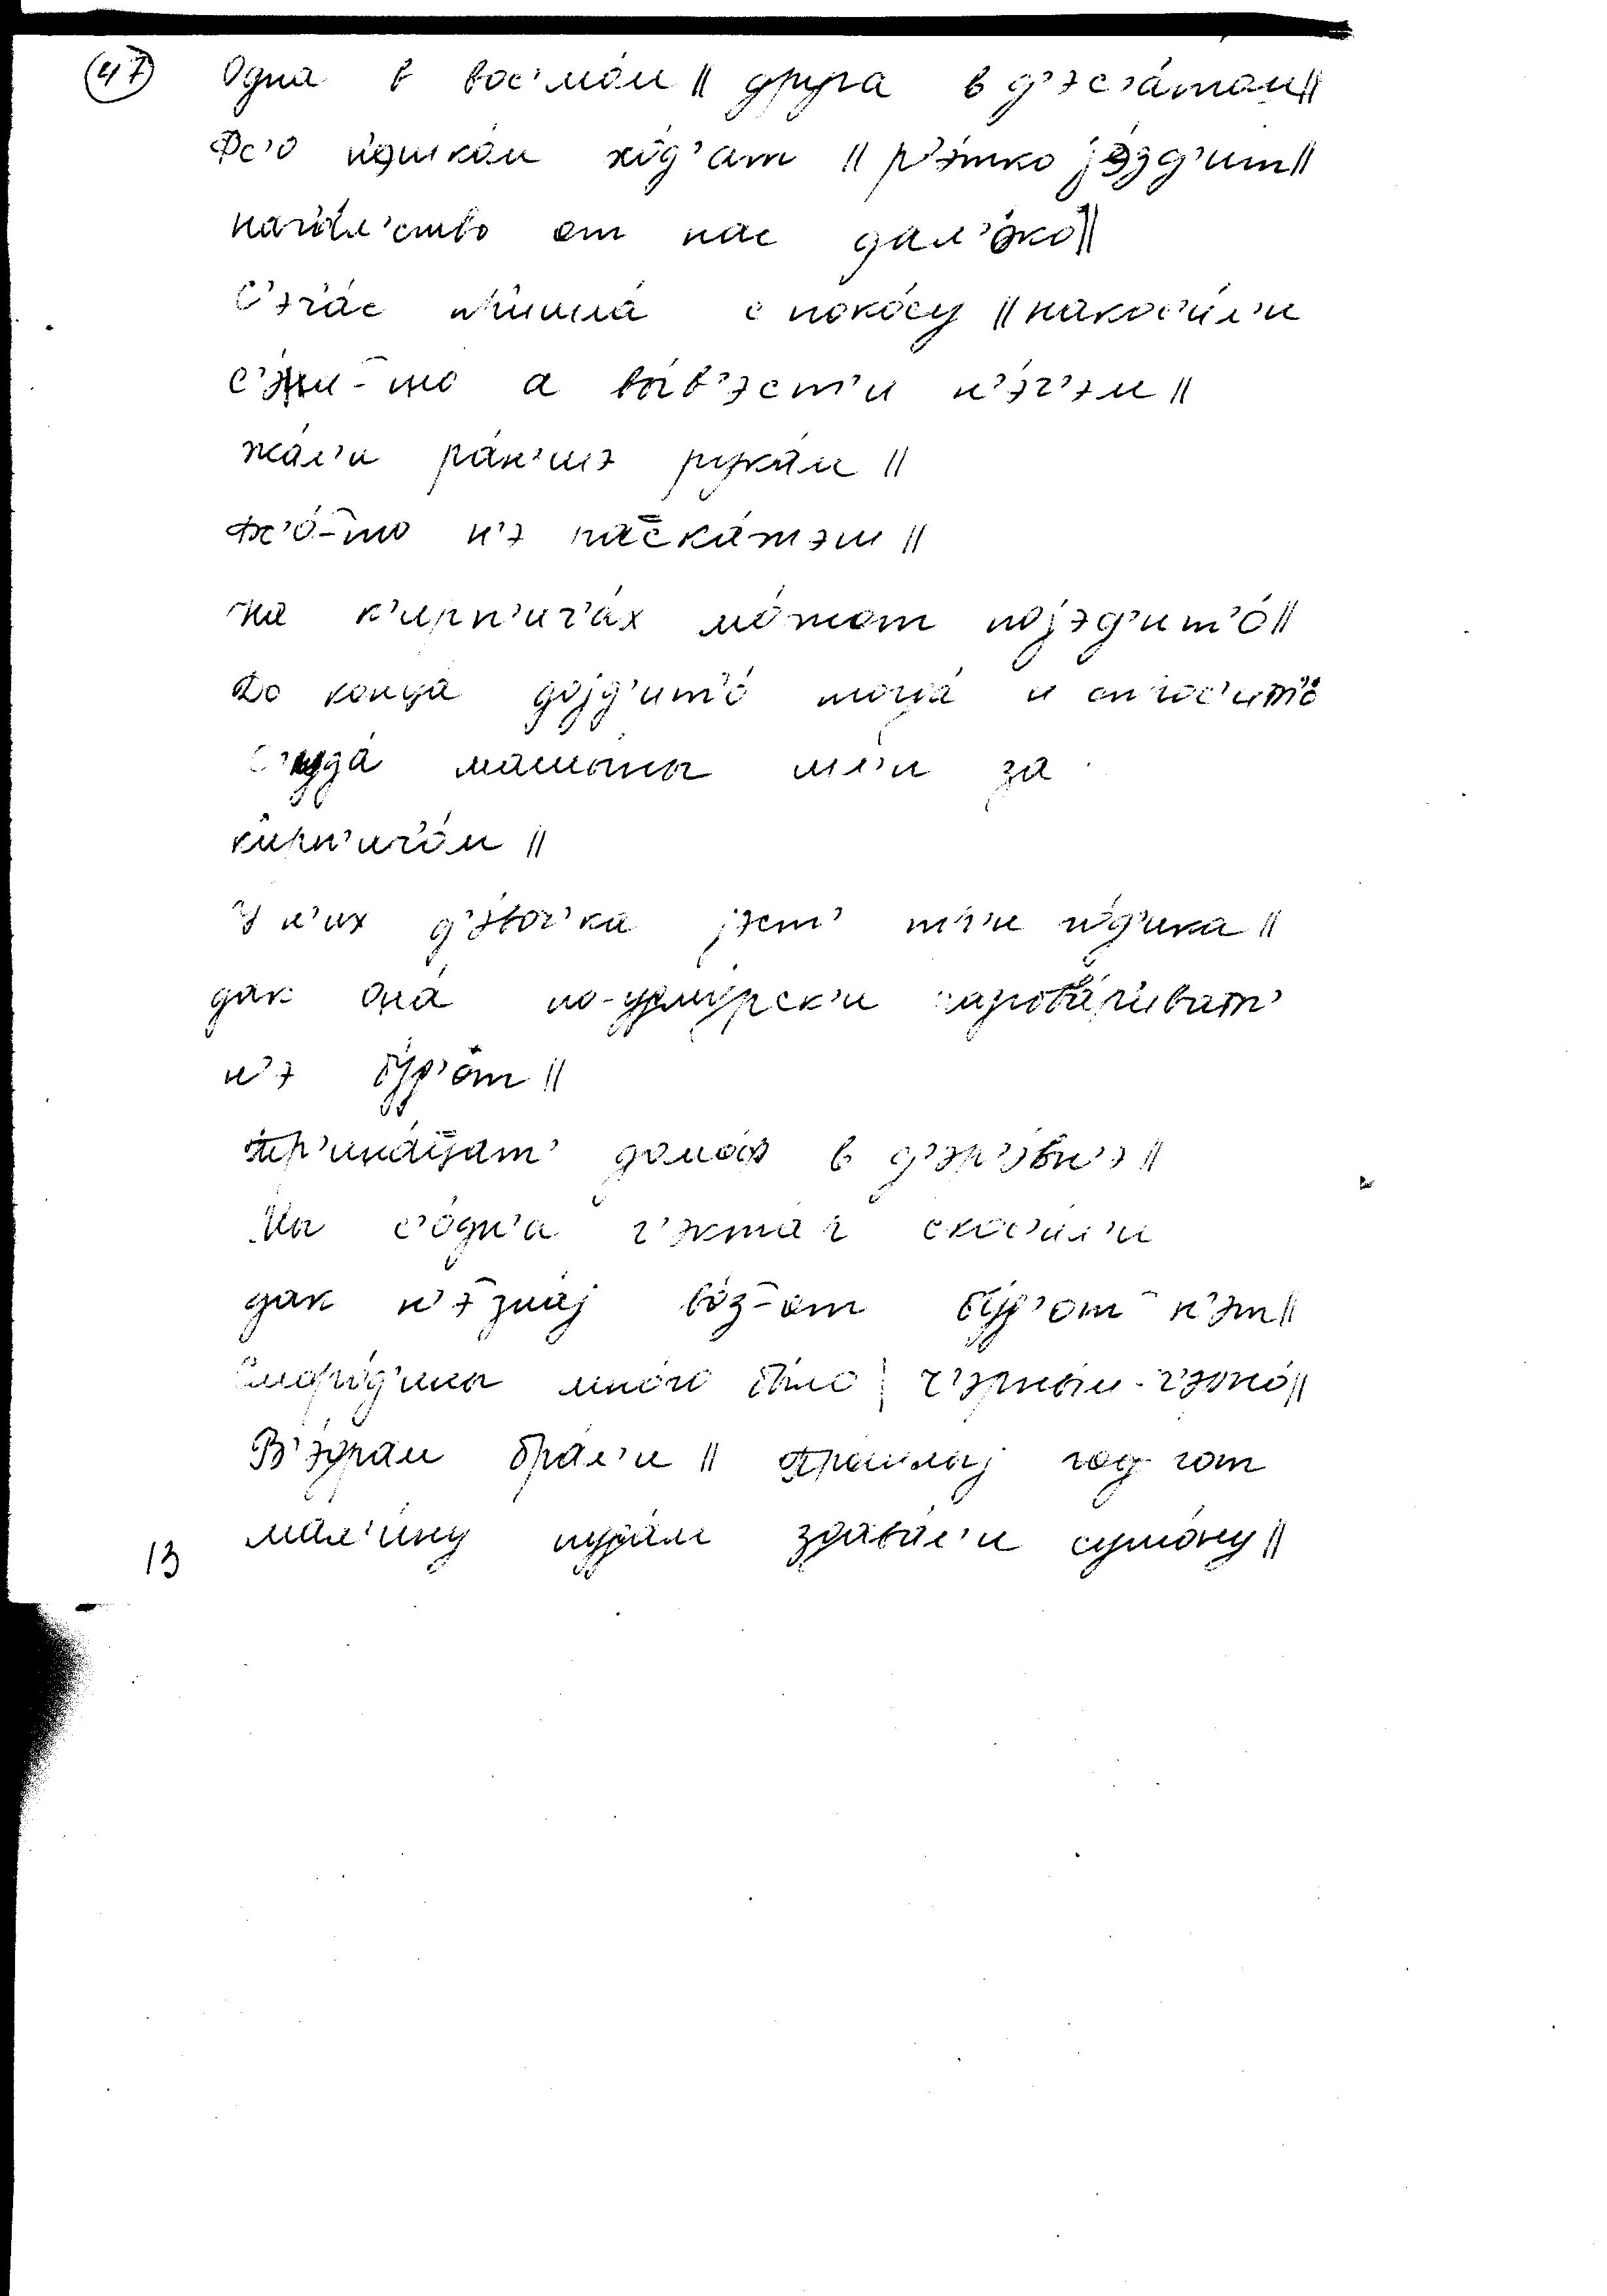 47 Одна в вос'мо́м || друга в д'эс'а́том ||
Фс'о п'эшко́м хо́д'ат || р'э́тко jэ́зд'ит ||
нача́л'ство от нас дал'о́ко ||
С'эча́с пр'ишла́ с поко́су || накос'и́л'и
с'э́н-то а вы́в'эст'и н'э́ч'эм ||
жа́л'и ра́н'шэ рука́м ||
фс'о́-то н'э раска́жэш ||
На к'ирп'ич'а́х мо́жот поjэд'ит'о́ ||
До конца́ доjд'ит'о́ тогда́ и спрос'ит'о́
С'уда́ машы́ны шл'и за
к'ирп'ичо́м ||
У н'их д'э́воч'ка jэст' тр'и го́д'ика ||
дак она́ по-удму́рск'и разгова́р'иват'
н'э бу́д'от ||
Тр'ина́ц̄ат' домо́ф в д'эр'э́вн'э ||
Мы с'о́дн'а г'экта́р скос'и́л'и
дак н'э зна́j во́з-от бу́д'от н'эт ||
Сморо́д'ины мно́го бы́ло | ч'эрны́м-ч'эрно́ ||
В'о́драм бра́л'и || Прошлаj год-от
мал'и́ну пуда́м здава́л'и сушо́ну ||
13